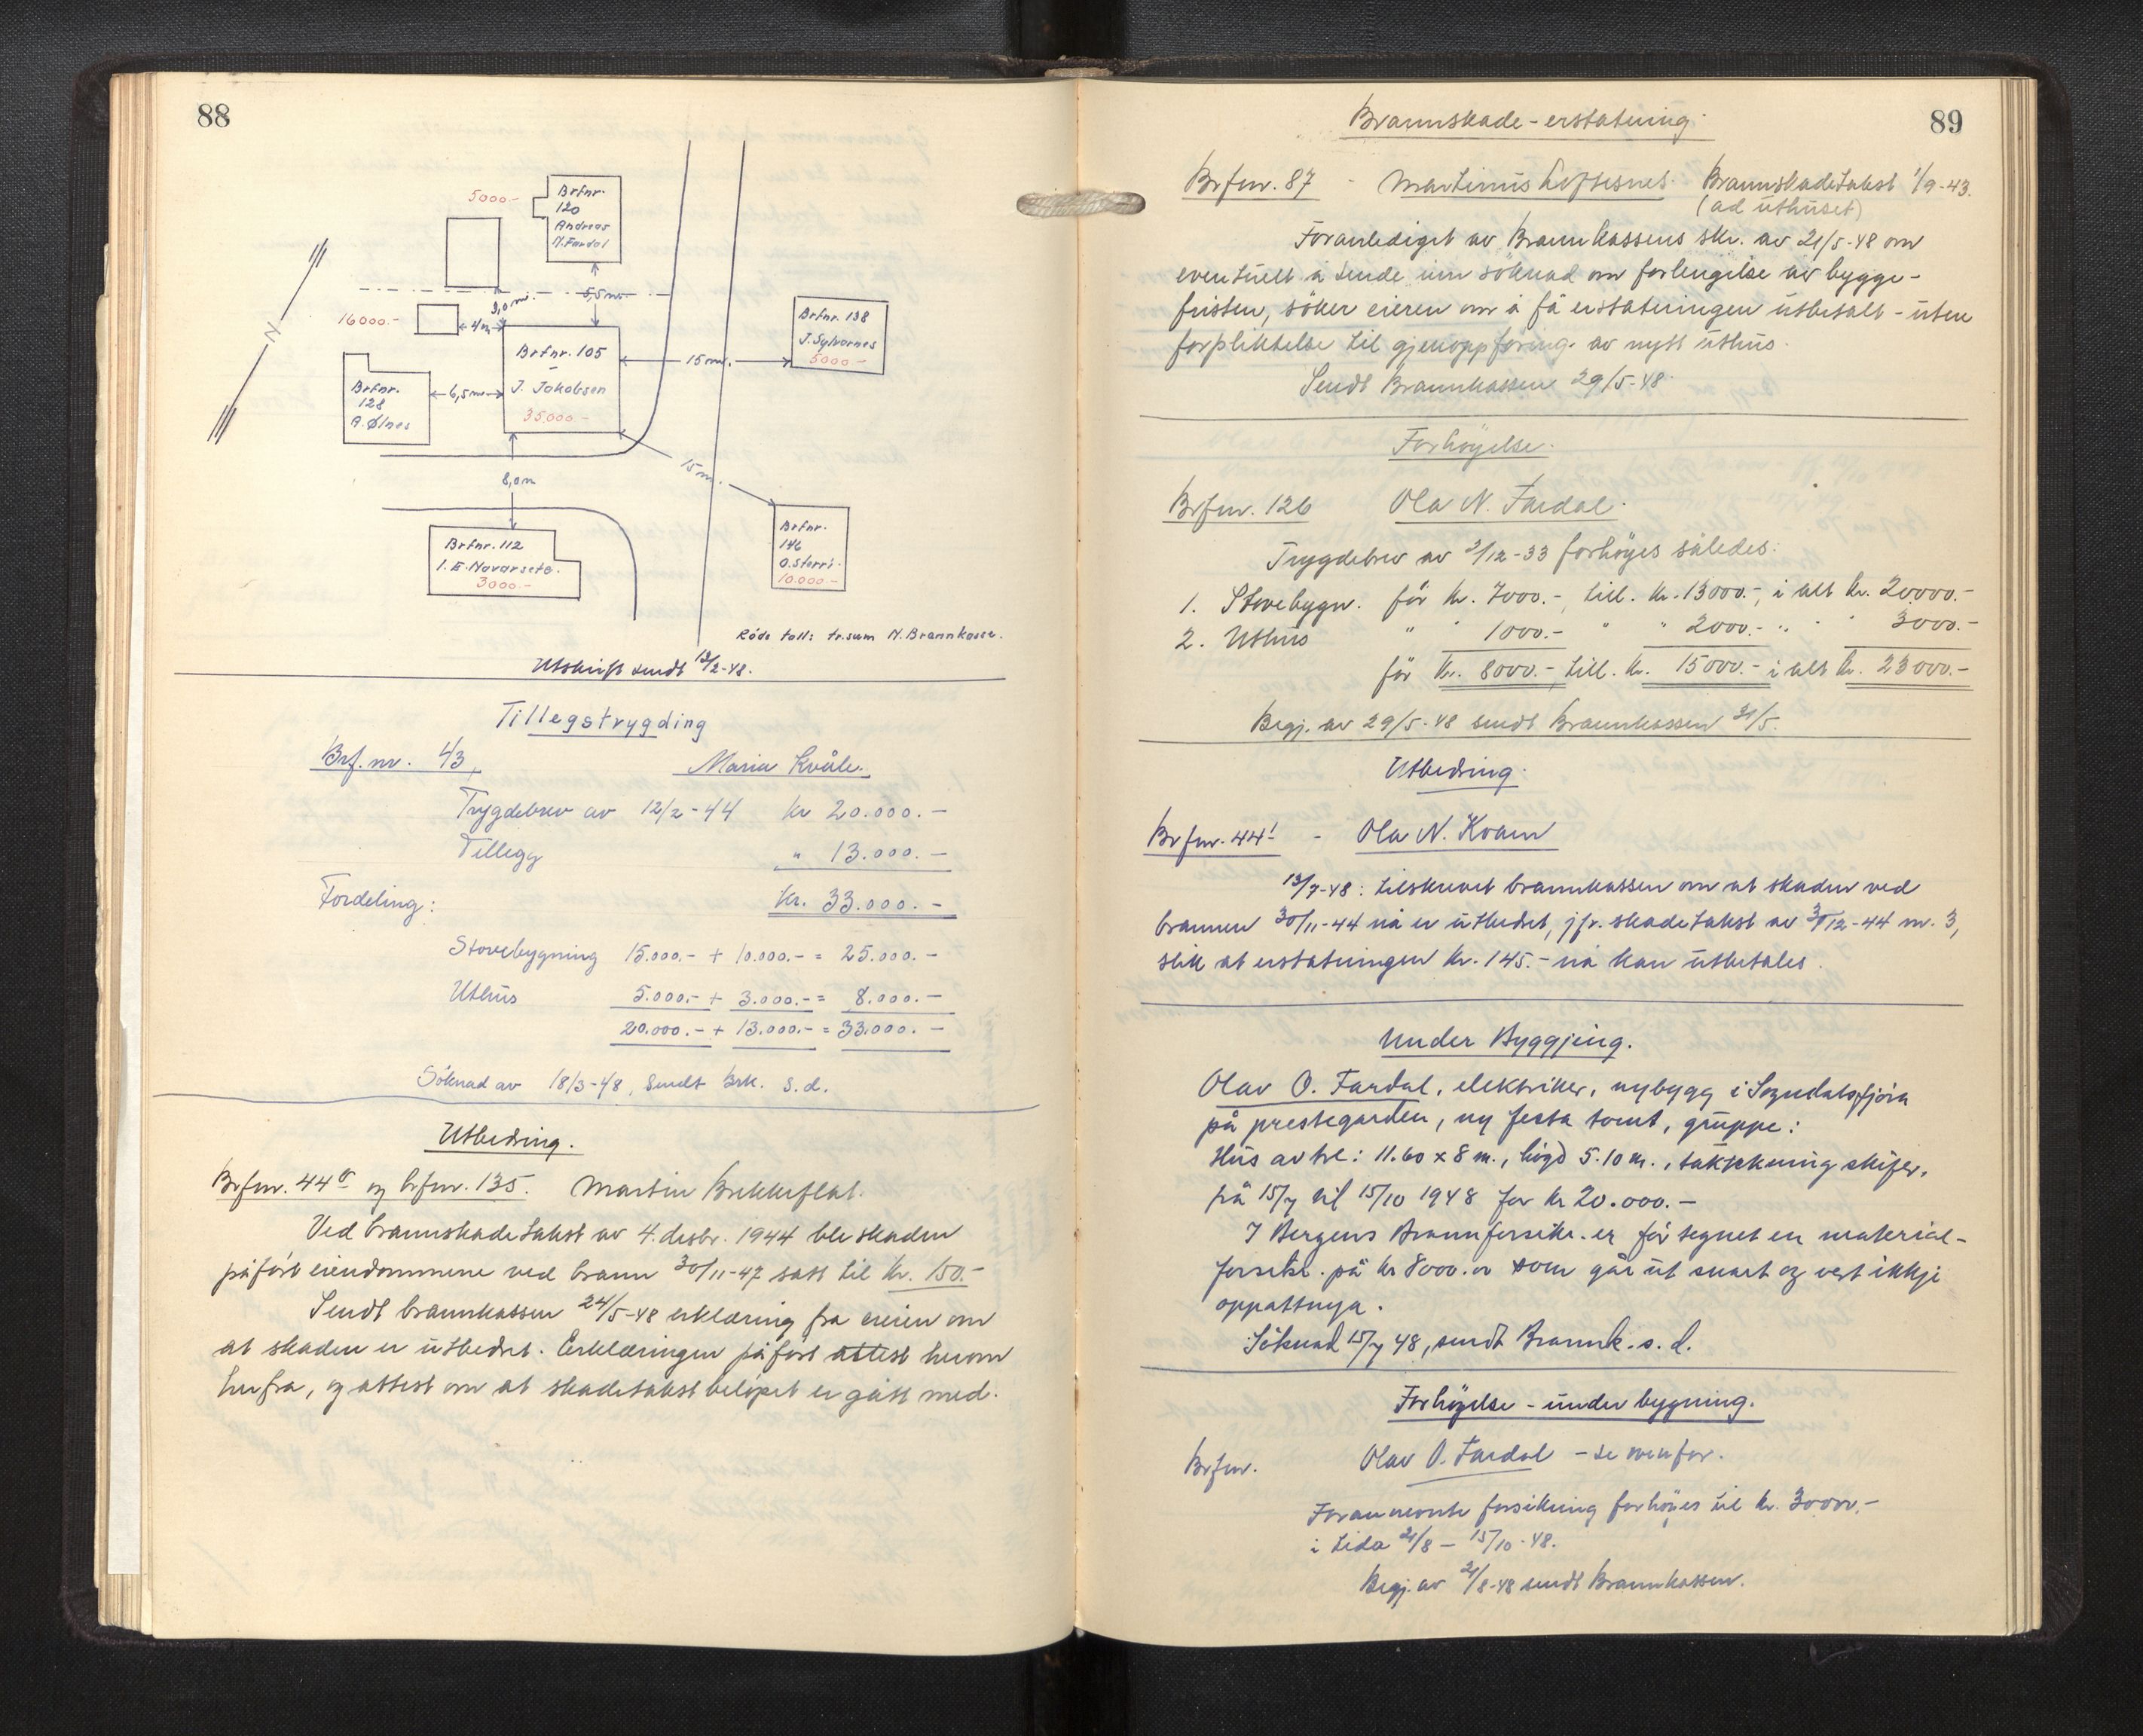 88
5000-
Brfnr.
120
Andreas
N. Fardal
N
3,0 m.
5,5 m.
16000.-
4 m
Brfnr. 105
-
J. Jakobsen
35000.-
15 m.
Brfnr. 138
J. Sylvarnes
5000.-
Brfnr.
128
A. Ølnes
6,5 m
15 m.
8,0 m
Brfnr. 112
I. E. Navarsete.
3000.-
Brfnr.
146
O. Størri.
10.000.-
Röde tall: tr.sum N. Brannkasse.
Utskrift sendt 12/2-48.
Tillegstrygding
Brf.nr. 43, Maria Kvåle.
Trygdebrev av 12/2-44 kr 20.000.-
Tillegg " 13.000.-
Fordeling: Kr. 33.000.-
Stovebygning 15.000.- + 10.000.- = 25.000.-
Uthus 5.000.- + 3.000.- = 8.000.-
20.000.- + 13.000.- = 33.000.-
Söknad av 18/3-48, sendt Brk. s.d.
Utbedring.
Brfnr. 44 og brfnr. 135. Martin Brekkeflat.
Ved brannskadetakst av 4. desbr. 1944 ble skaden
påfört eiendommene ved brann 30/11-47 satt til kr. 150.-
Sendt brannkassen 24/5-48 erklæring fra eieren om
at skaden er utbedret. Erklæringen påfört attest herom
herfra, og attest om at skadetakstbelöpet er gått med.
89
Brannskade-erstatning.
Brfnr. 87 - Martinus Loftesnes. Brannskadetakst 1/9-43.
(ad uthuset)
Foranlediget av Brannkassens skr. av 21/5-48 om
eventuelt å sende inn söknad om forlengelse av bygge-
fristen, söker eieren om å få erstatningen utbetalt - uten
forpliktelse til gjenoppföring av nytt uthus.
Sendt Brannkassen 29/5-48.
Forhöyelse.
Brfnr. 126 Ola N. Fardal.
Trygdebrev av 2/12-33 forhöyes således:
1. Stovebygn. för kr. 7000.-, till. kr. 13000.-, i alt kr. 20.000.-
2. Uthus " " 1000.- " " 2000.- " " " 3000.-
för kr. 8000.-, till. kr. 15000.- i alt kr. 23000.-
Begj. av 29/5-48 sendt Brannkassen 31/5.
Utbedring.
Brfnr. 44¹ - Ola N. Kvam
13/7-48: tilskrevet brannkassen om at skaden ved
brannen 30/11-44 nå er utbedret, jfr. skadetakst av 3/12-44 nr. 3,
slik at erstatningen kr. 145.- nå kan utbetales.
Under Byggjing.
Olav O. Fardal, elektriker, nybygg i Sogndalsfjöra
på prestegarden, ny festa tomt, gruppe:
Hus av tre: 11.60 x 8 m., högd 5.10 m., taktekning skifer,
på 15/7 til 15/10 1948 for kr 20.000.-
I Bergens Brannforsikr. er för tegnet en material-
forsikr. på kr 8000.00 som går ut snart og vert ikkje
oppattnya.
Söknad 15/7 48, sendt Brannk. s. d.
Forhöyelse - under bygning.
Brfnr. Olav O. Fardal - se ovenfor.
Forannevnte forsikring forhöyes til kr. 30000.-
i tida 21/8 - 15/10-48.
Begj. av 21/8-48 sendt Brannkassen.